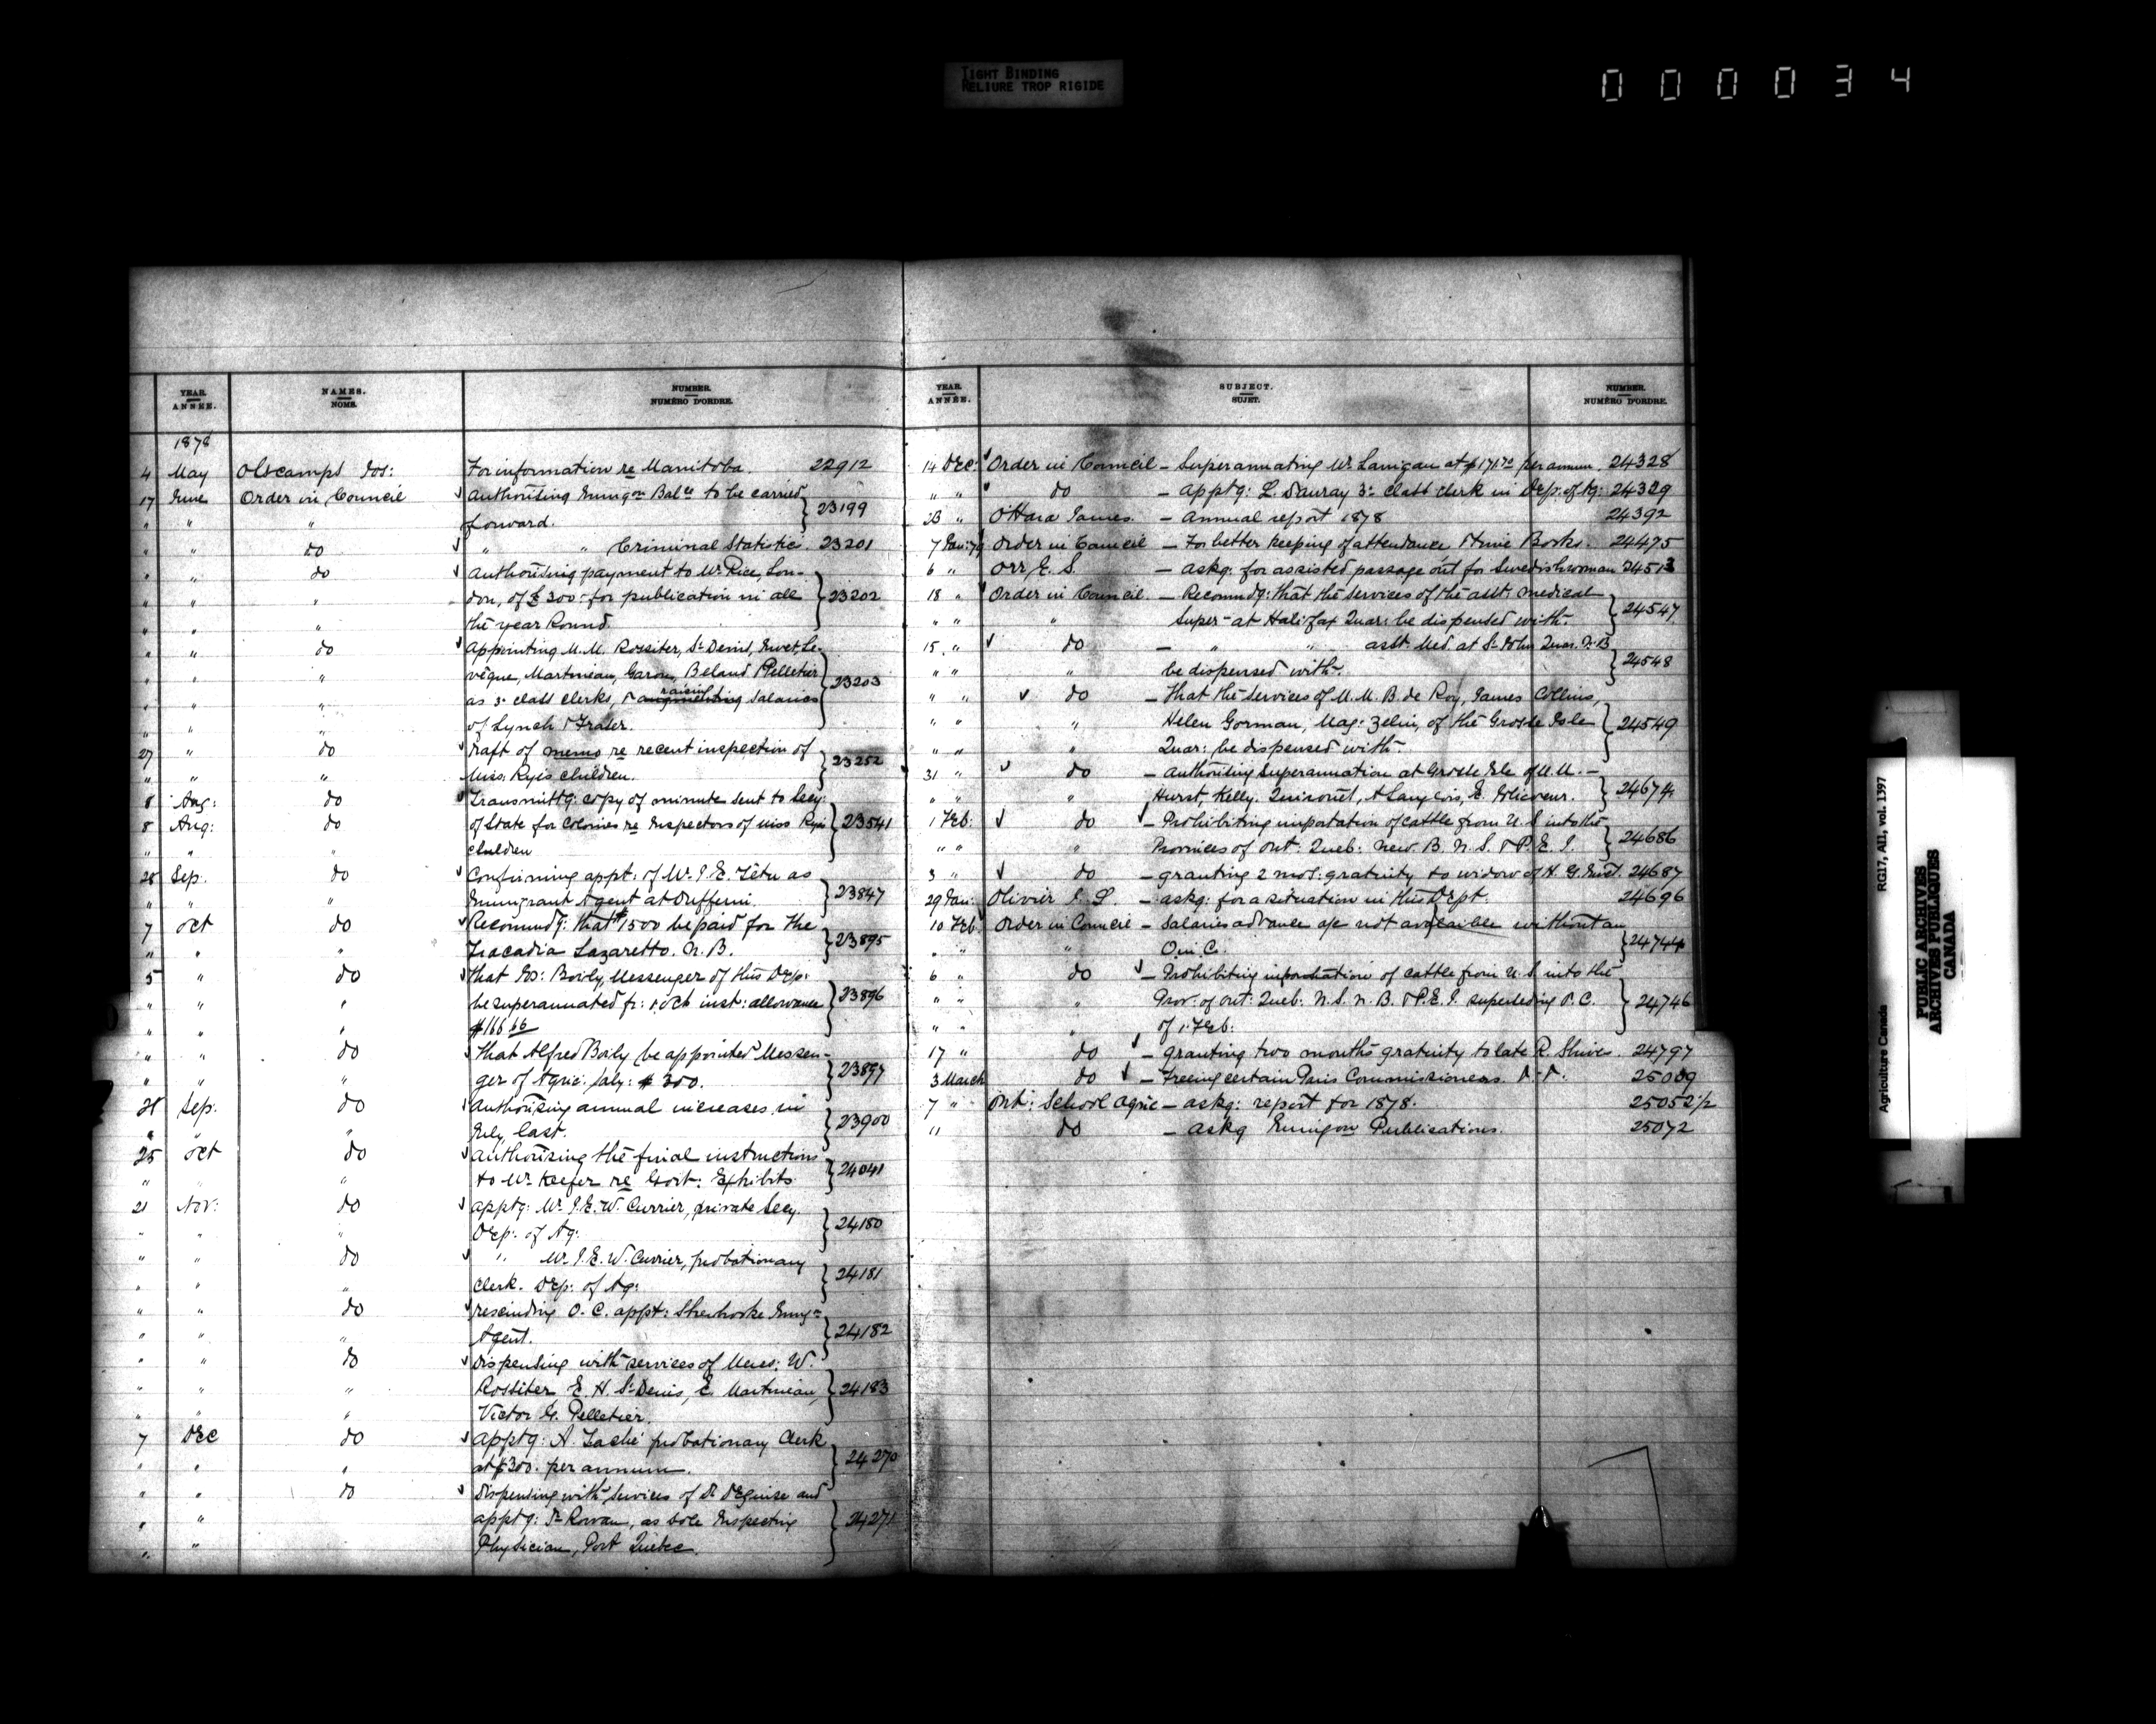 TIGHT BINDING
RELIURE TROP RIGIDE
000034
YEAR. ANNÉE. NAMES. NOMS. NUMBER. NUMÉRO D'ORDRE.
1878
4 May Olscamps Jos: For information re Manitoba. 22912
17 June Order in Council Authorising Immigon Balce to be carried
" " " forward. } 23199
" " do " " Criminal Statistic. 23201
" " do Authorising payment to Mr. Rice, Lon-
" " " don, of £300- for publication in all } 23202
" " " the year Round.
" " do Appointing M.M. Rossiter, St Denis, Le-
" " " vêque, Martineau, Garon, Beland & Pelletier } 23203
" " " as 3d class clerks, & augmenting raising salaries
" " " of Lynch & Fraser.
27 " do Draft of memo re recent inspection of } 23252
" " " Miss Rye's children.
8 Aug: do Transmittg: copy of minute sent to Secy:
8 Aug: do of State for Colonies re Inspectors of Miss Rye's } 23541
" " " children
28 Sep. do Confirming appt: of Mr. J. E. Têtu as
" " " Immigrant Agent at Dufferin. } 23847
7 Oct do Recommdg: that $1500 be paid for the
" " " Tracadia Lazaretto. N.B. } 23895
5 " do That Geo: Boily, Messenger of this Dep:
" " " be superannuated fr: 1 Oct inst: allowance } 23896
" " " $166 66
" " do That Alfred Boily be appointed Messen-
" " " ger of Agric: Saly: $300. } 23897
28 Sep. do Authorising annual increases in
" " " July last. } 23900
25 Oct do Authorising the final instructions
" " " to Mr. Keefer re Govt: Exhibits } 24041
21 Nov: do Apptg: Mr. J.E.W. Currier, private Secy.
" " " Dep: of Ag: } 24180
" " do " Mr. J.E.W. Currier, probationary
" " " Clerk. Dep: of Ag: } 24181
" " do rescinding O.C. appt: Sherbrooke Immign
" " " Agent. } 24182
" " do Dispensing with services of Messs: W.
" " " Rossiter, E. H. St Denis, E. Martineau, } 24183
" " " Victor G. Pelletier.
7 Dec do Apptg: A. Taché probationary Clerk
" " " at $300. per annum. } 24270
" " do Dispensing with services of Dr. DeGuise and
" " apptg: Dr. Rowan, as sole Inspecting } 24271
" " Physician, Port Quebec.
YEAR. ANNÉE. SUBJECT. SUJET. NUMBER. NUMÉRO D'ORDRE.
14 Dec: Order in Council – Superannuating Mr. Lanigan at $171.70 per annum. 24328
" " do – Apptg: L. Dauray 3d class clerk in Dep: of Ag: 24329
23 " O'Hara James. – Annual report 1878 24392
7 Jan: 79 Order in Council – For better keeping of attendance & time Books. 24475
6 " Orr E. S. – askg: for assisted passage out for Swedish woman 24513
18 " Order in Council – Recommdg: that the services of the asst. medical
" " " Super- at Halifax Quar: be dispensed with. } 24547
15 " do – " " asst. Med. at St John Quar. N.B
" " " be dispensed with. } 24548
" " do – That the services of M.M. B. de Roy, James Collins,
" " " Helen Gorman, Mag: Zelin, of the Grosse Isle } 24549
" " " Quar: be dispensed with.
31 " do – Authorising superannuation at Grosse Isle of M.M. –
" " " Hurst, Kelly, A Langlois, } 24674
1 Feb: do – Prohibiting importation of cattle from U.S into the
" " " Provinces of Ont: Queb: New. B. N.S. & P.E.I. } 24686
3 " do – granting 2 mos: gratuity to widow of H. G. 24687
29 Jan: Olivier L. S. – askg: for a situation in this Dept. 24696
10 Feb. Order in Council – Salaries advance a/c not available without an
" " O. in C. } 24744
6 " do – Prohibiting importation of cattle from U.S into the
" " " Prov: of Ont: Queb: N.S. N.B. & P.E.I. superseding O.C. } 24746
" " " of 1. Feb:
17 " do – granting two months gratuity to late R. Shives. 24797
3 March do – Freeing certain Paris Commissioners. 25009
7 " Ont: School Agric – askg: report for 1878. 25052½
11 do – askg Immigon Publications. 25072
Agriculture Canada RG17, AII, vol. 1397
PUBLIC ARCHIVES
ARCHIVES PUBLIQUES
CANADA